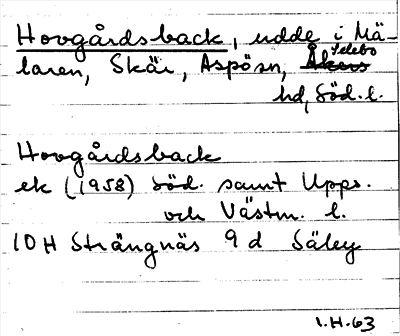 Hovgårdsback, udde i Mä-
laren, Skär, Aspön, Åkers Selebo
hd, Söd. l.
Hovgårdsback
ek (1958) Söd. samt Upps.
och Västm. l.
10 H Strängnäs 9 d Säley
I.H.63